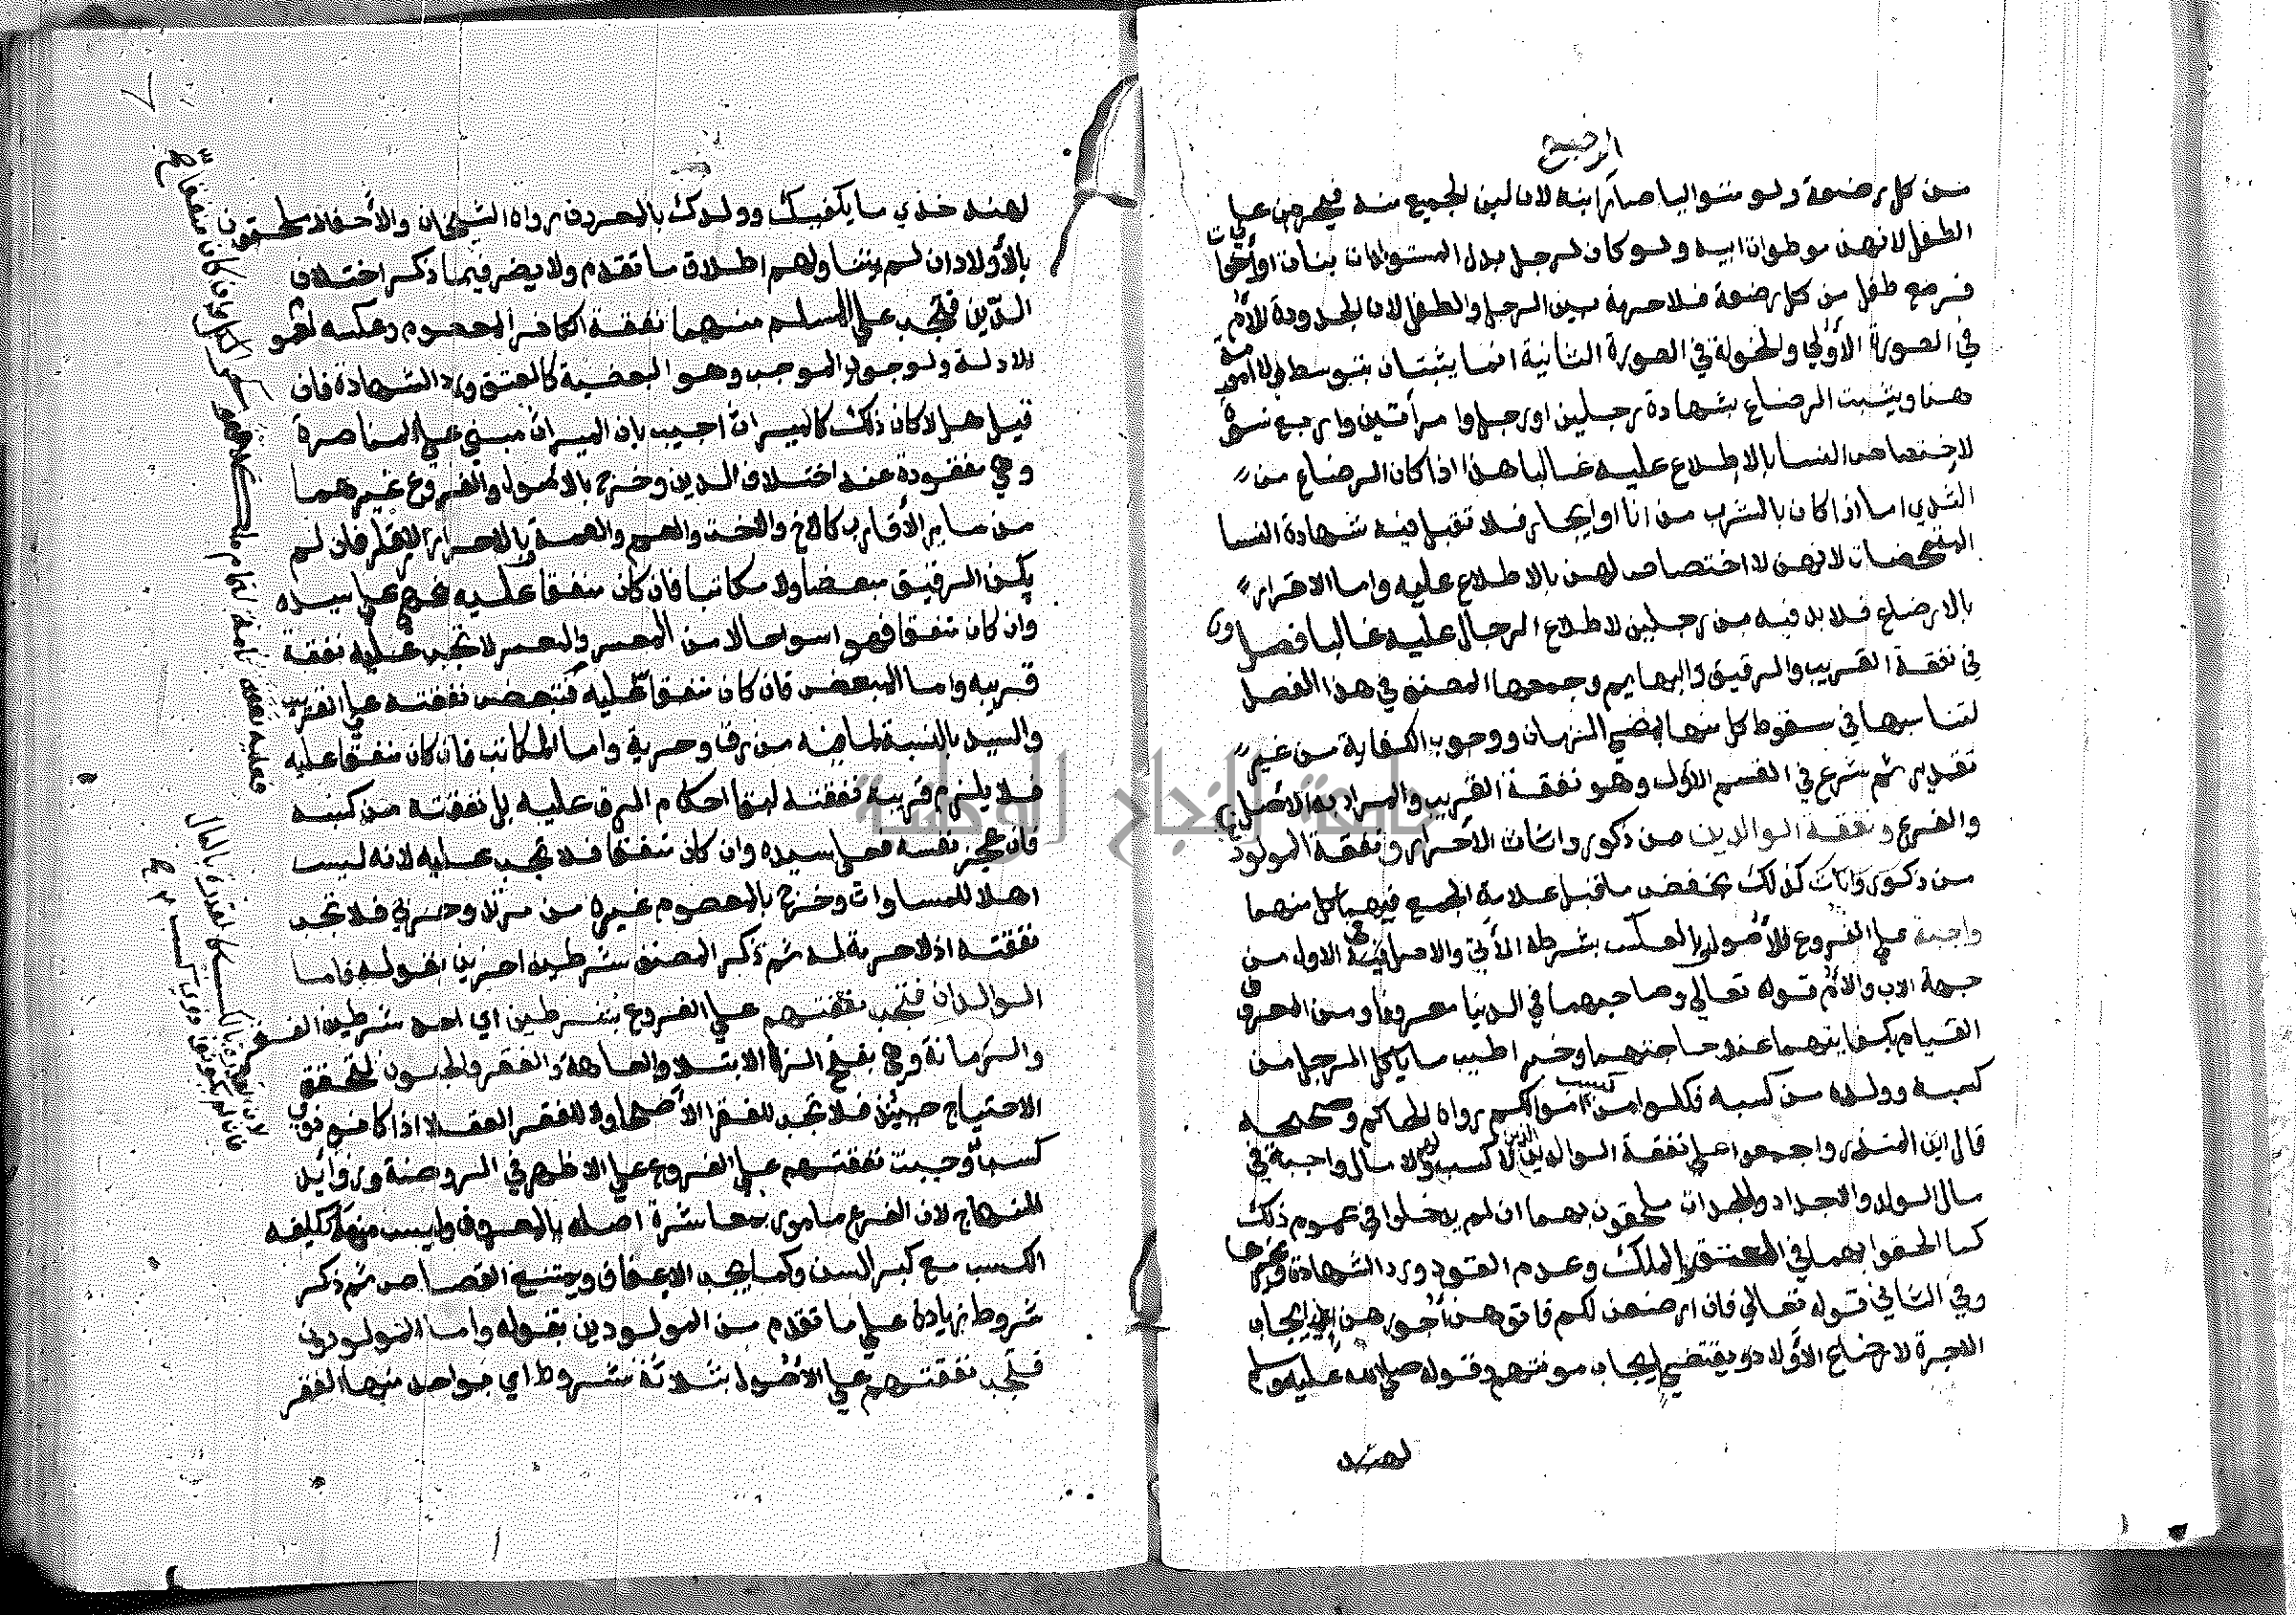 الرضيع
من كل رضعة ولو متواليا صار ابنه لان لبن الجميع منه فيحرمن على
الطفل لانهن موطوات ابيه ولو كان لرجل بدل المستولدات بنات او أخوات
فرضع طفل من كل رضعة فلا حرمة بين الرجل والطفل لان الجدودة للأم
في الصورة الأولي والخولة في الصورة الثانية انما يثبتان بتوسط ولا امومة
هنا ويثبت الرضاع بشهادة رجلين او رجل وامرأتين واربع نسوة
لاختصاص النسا بالاطلاع عليه غالبا هذا اذا كان الرضاع من
الثدي اما اذا كان بالشرب من انا او ايجار فلا تقبل فيه شهادة النسا
المتمحضات لانهن لا اختصاص لهن بالاطلاع عليه واما الاقرار
بالارضاع فلا بد فيه من رجلين لاطلاع الرجال عليه غالبا فصل
في نفقة القريب والرقيق والبهايم وجمعها المصنف في هذا الفصل
لتناسبها في سقوط كل منها بمضي الزمان ووجوب الكفاية من غير
تقدير ثم شرع في القسم الأول وهو نفقة القريب والمراد به الأصل
والفرع ونفقة الوالدين من ذكور واناث الأحرار ونفقة المولودين
من ذكور واناث كذلك بخفض ما قبل علامة الجمع فيهما كل منهما
واجبة علي الفروع للأصول وبالعكس بشرطه الأتي والاصل في الاول من
جهة الاب والأم قوله تعالي وصاحبهما في الدنيا معروفا ومن المعروف
القيام بكفايتهما عند حاجتهما وخبر اطيب ما ياكل الرجل من
كسبه وولده من كسبه فكلوا من أموالكم رواه الحاكم وصححه
قال ابن المنذر واجمعوا علي نفقة الوالدين الذين لا كسب لهما ولا مال واجبة في
مال الولد والاجداد والجدات ملحقون بهما ان لم يدخلوا في عموم ذلك
كما الحقوا بهما في العتق بالملك وعدم القود ورد الشهادة وغيرها
وفي الثاني قوله تعالي فان ارضعن لكم فاتوهن أجورهن اذ ايجاب
الاجرة لارضاع الأولاد يقتضي ايجاب مونتهم وقوله صلي الله عليه وسلم
لهند
لهند خذي ما يكفيك وولدك بالمعروف رواه الشيخان والأحفاد ملحقون
بالأولاد ان لم يتناولهم اطلاق ما تقدم ولا يضر فيما ذكر اختلاف
الدين فتجب علي المسلم منهما نفقة الكافر المعصوم وعكسه لعموم
الادلة ولوجود الموجب وهو البعضية كالعتق ورد الشهادة فان
قيل هلا كان ذلك كالميراث اجيب بان الميراث مبني علي المناصرة
وهي مفقودة عند اختلاف الدين وخرج بالاصول والفروع غيرهما
من ساير الأقارب كالاخ والاخت والعم والعمة وبالاحرار الارقا فان لم
يكن الرقيق مبعضا ولا مكاتبا فان كان منفقا عليه فهي علي سيده
وان كان منفقا فهو اسوا حالا من المعسر والمعسر لا تجب عليه نفقة
قريبه واما المبعض فان كان منفقا عليه فتبعض نفقته علي القريب
والسيد بالنسبة لما فيه من رق وحرية واما المكاتب فان كان منفقا عليه
فلا يلزم قريبه نفقته لبقا احكام الرق عليه بل نفقته من كسبه
فان عجز نفسه فعلي سيده وان كان منفقا فلا تجب عليه لانه ليس
اهلا للمساوات وخرج بالمعصوم غيره من مرتد وحربي فلا تجب
نفقته اذ لا حرمة له ثم ذكر المصنف شرطين اخرين بقوله فاما
الوالدان فتجب نفقتهم علي الفروع بشرطين اي احد شرطين الفقر
والزمانة وهي بفتح الزا الابتلا والعاهة والفقر والجنون لتحقق
الاحتياج حينئذ فلا تجب للفقرا الأصحا ولا للفقرا العقلا اذا كانوا ذوي
كسب أوجبت نفقتهم علي الفروع علي الاظهر في الروضة وزوايد
المنهاج لان الفرع مامور بمعاشرة اصله بالمعروف وليس منها تكليفه
الكسب مع كبر السن وكما يجب الاعفاف ويمتنع القصاص ثم ذكر
شروط زيادة علي ما تقدم من المولودين بقوله واما المولودون
فتجب نفقتهم علي الأصول بثلاثة شروط اي بواحد منها الفقر